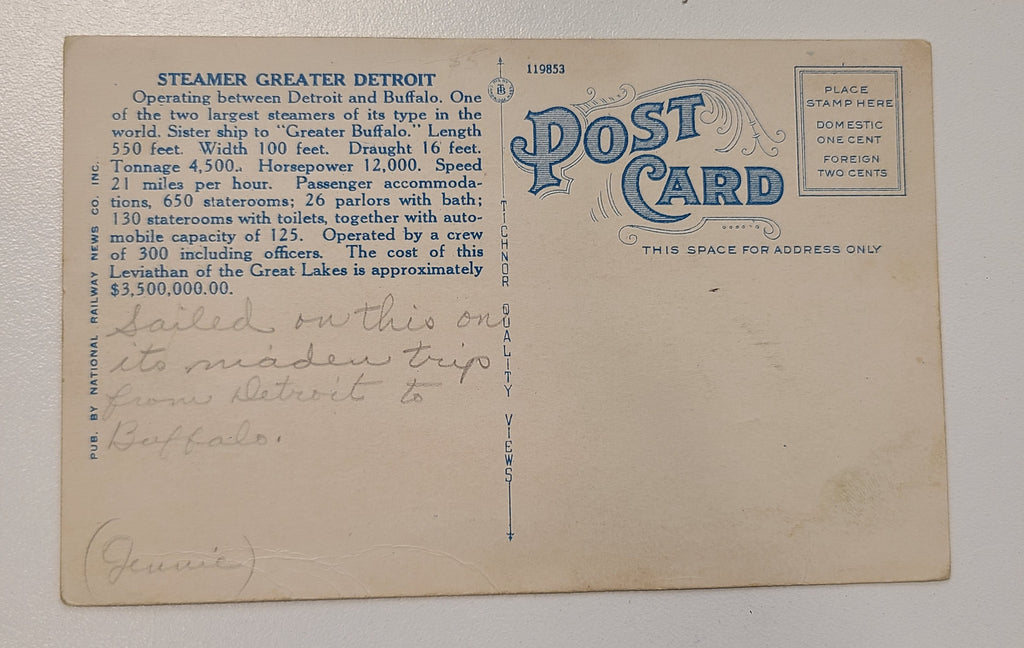 STEAMER GREATER DETROIT
Operating between Detroit and Buffalo. One
of the two largest steamers of its type in the
world. Sister ship to "Greater Buffalo." Length
550 feet. Width 100 feet. Draught 16 feet.
Tonnage 4,500.. Horsepower 12,000. Speed
21 miles per hour. Passenger accommoda-
tions, 650 staterooms; 26 parlors with bath;
130 staterooms with toilets, together with auto-
mobile capacity of 125. Operated by a crew
of 300 including officers. The cost of this
Leviathan of the Great Lakes is approximately
$3,500,000.00.
Sailed on this on
its maden trip
from Detroit to
Buffalo.
(Jennie)
PUB. BY NATIONAL RAILWAY NEWS CO. INC.
TICHNOR QUALITY VIEWS
119853
POST
CARD
THIS SPACE FOR ADDRESS ONLY
PLACE
STAMP HERE
DOMESTIC
ONE CENT
FOREIGN
TWO CENTS